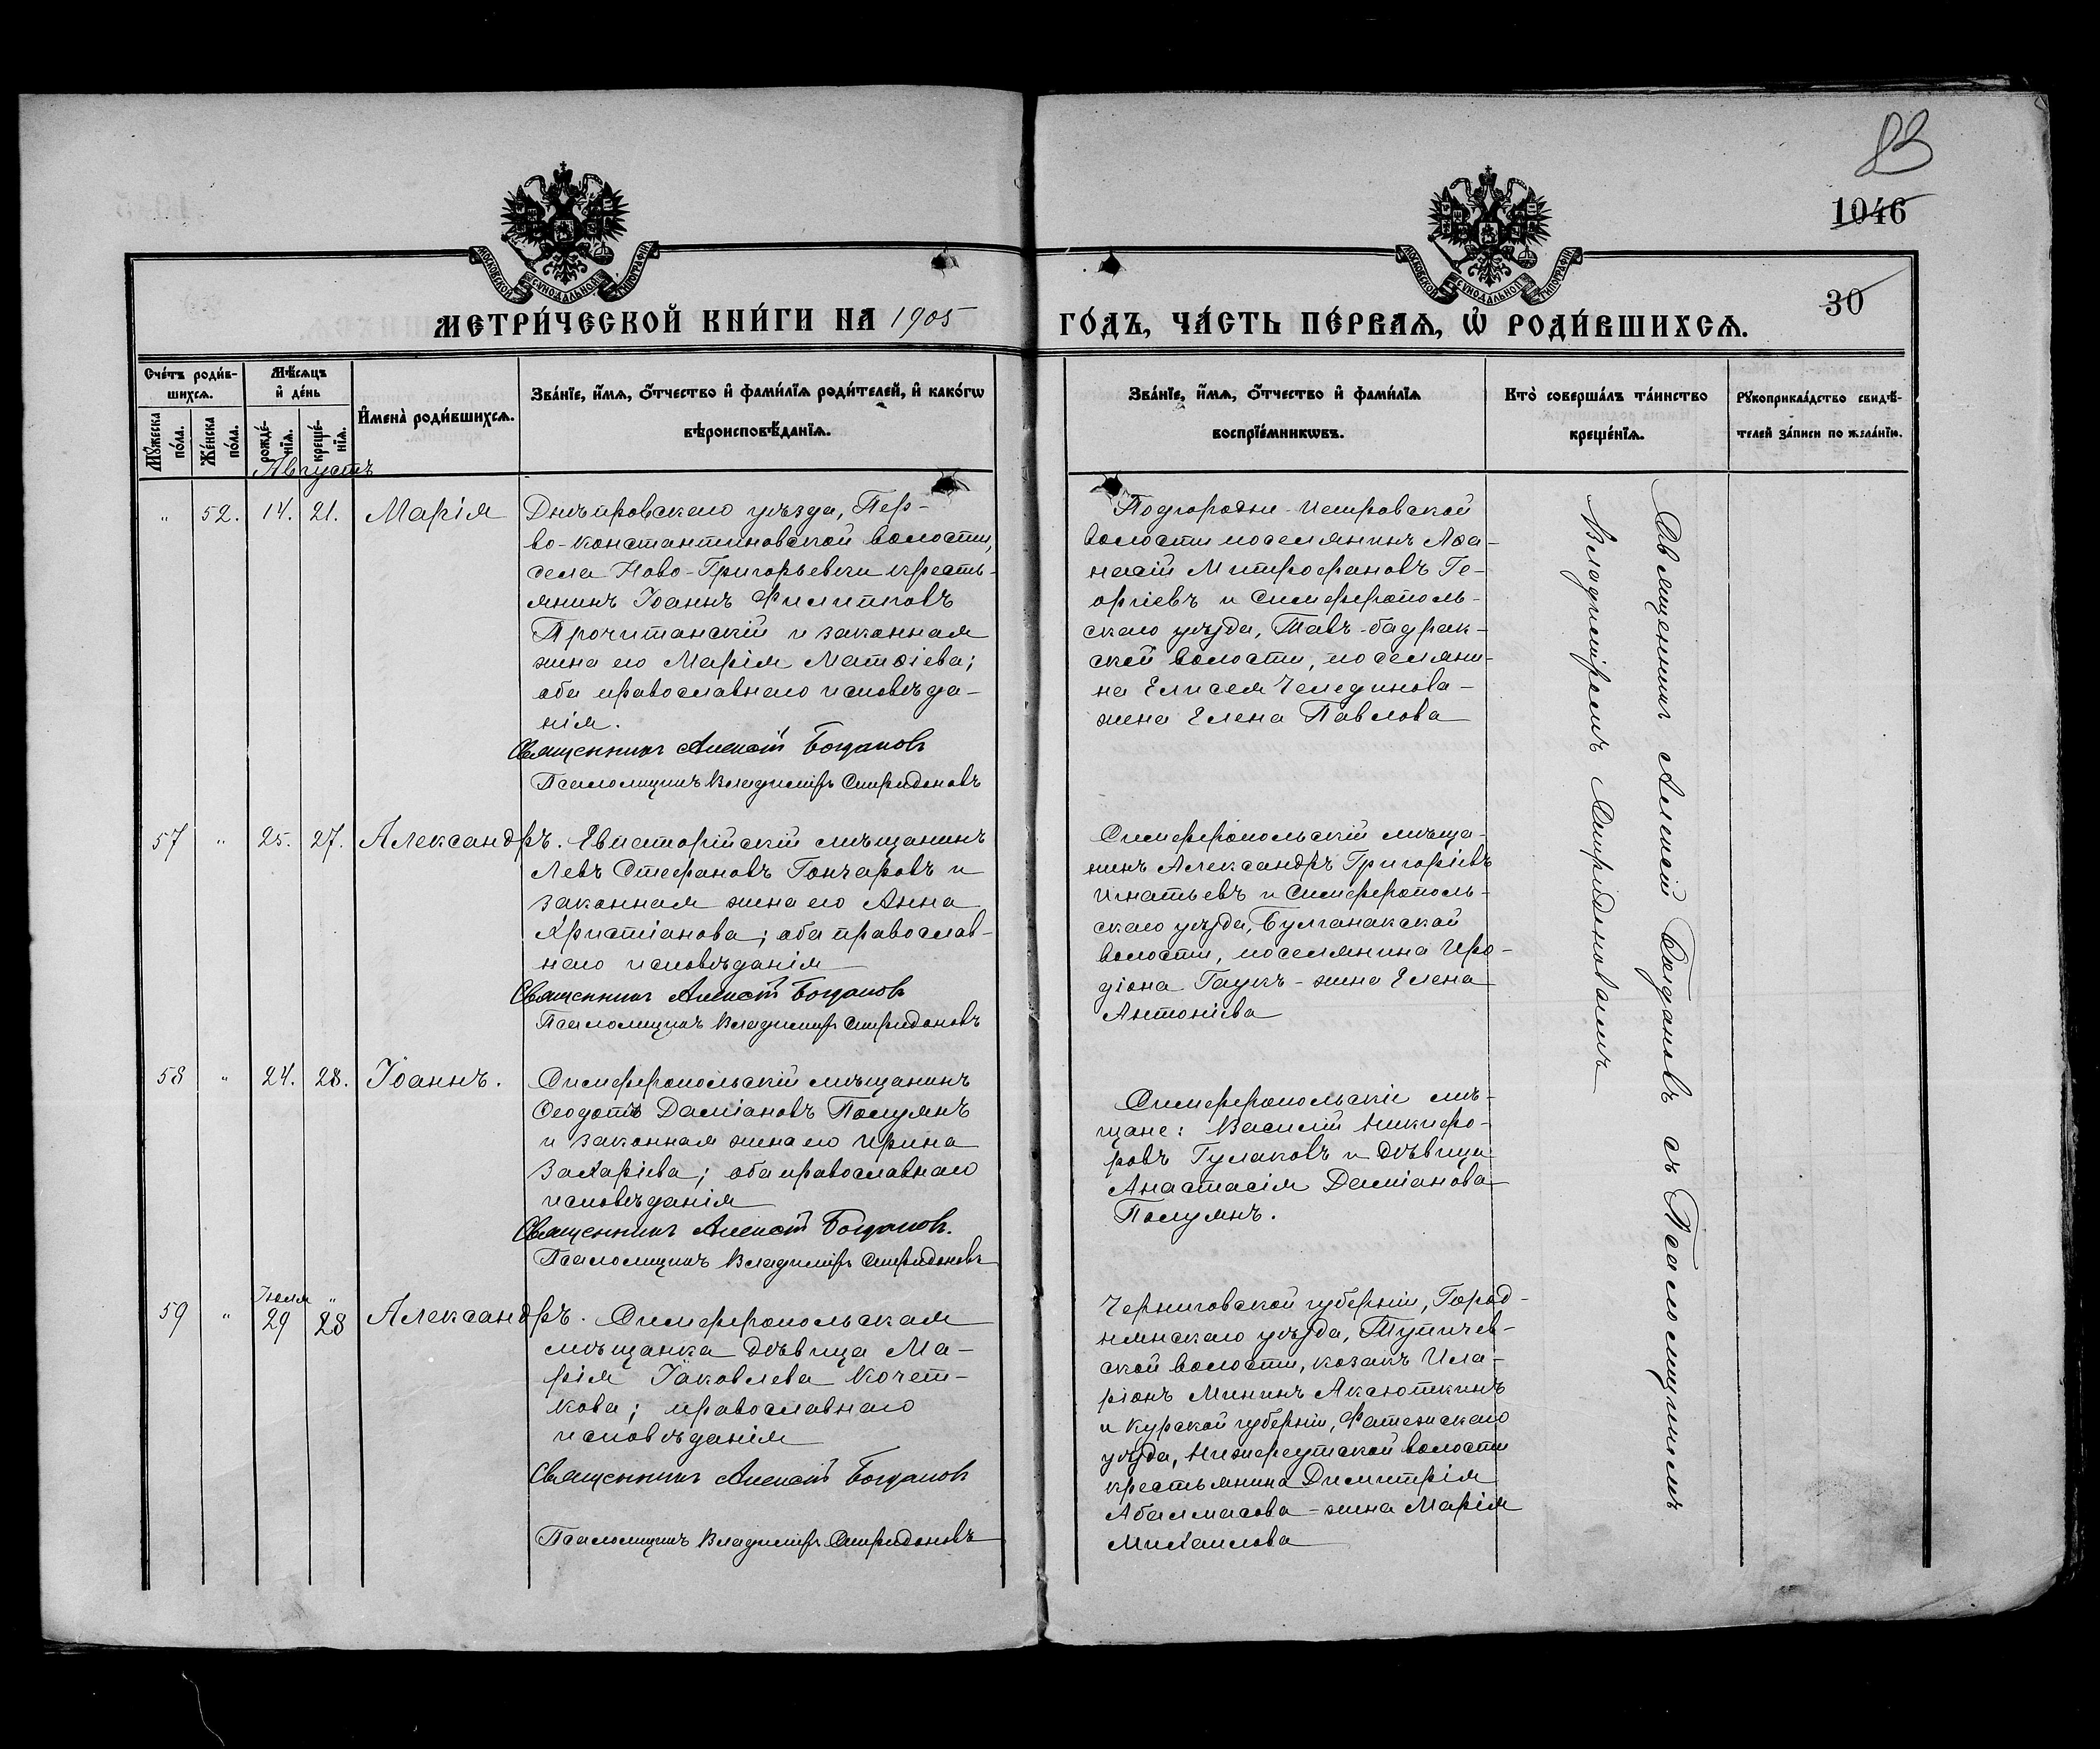 83
1046
30
МОСКОВСКОЙ СѴНОДАЛЬНОЙ ТИПОГРАФІИ
МОСКОВСКОЙ СѴНОДАЛЬНОЙ ТИПОГРАФІИ
МЕТРИ́ЧЕСКОЙ КНИ́ГИ НА 1905
ГО́ДЪ, ЧА́СТЬ ПЕ́РВАѦ, Ѡ҆ РОДИ́ВШИХСѦ.
Сче́тъ роди́в-
шихсѧ.
Мꙋ́жеска
по́ла.
Же́нска
по́ла.
Мѣ́сѧцъ
и҆ де́нь
рожде́-
нїѧ.
креще́-
нїѧ.
И҆мена̀ роди́вшихсѧ.
Зва́нїе, и҆́мѧ, ѻ҆́тчество и҆ фами́лїѧ роди́телей, и҆ како́гѡ
вѣроисповѣ́данїѧ.
Зва́нїе, и҆́мѧ, ѻ҆́тчество и҆ фами́лїѧ
воспрїе́мникѡвъ.
Кто̀ соверша́лъ та́инство
креще́нїѧ.
Рꙋкоприкла́дство свидѣ́-
телей за́писи по жела́нїю.
Августъ
" 52. 14. 21. Марія
Днѣпровскаго уѣзда, Пер-
во-Константиновской волости,
села Ново-Григорьевки кресть-
янинъ Іоаннъ Филипповъ
Прочитанскій и законная
жена его Марія Матѳіева;
оба православнаго исповѣда-
нія.
Священникъ Алексій Богдановъ
Псаломщикъ Владиміръ Спиридоновъ
Подгородне-Петровской
волости поселянинъ Аѳа-
насій Митрофановъ Ге-
оргіевъ и Симферополь-
скаго уѣзда, Тавъ-бадрак-
ской волости, поселяни-
на Елисея Челединова -
жена Елена Павлова
57 " 25. 27. Александръ.
Евпаторійскій мѣщанинъ
Левъ Стефановъ Гончаровъ и
законная жена его Анна
Христіанова; оба православ-
наго исповѣданія
Священникъ Алексій Богдановъ
Псаломщикъ Владиміръ Спиридоновъ
Симферопольскій мѣща-
нинъ Александръ Григоріевъ
Игнатьевъ и Симферополь-
скаго уѣзда, Булганакской
волости, поселянина Иро-
діона Гаукъ - жена Елена
Антоніева
58 " 24. 28. Іоаннъ.
Симферопольскій мѣщанинъ
Ѳеодотъ Даміановъ Полуянъ
и законная жена его Ирина
Захаріева; оба православнаго
исповѣданія
Священникъ Алексій Богдановъ.
Псаломщикъ Владиміръ Спиридоновъ
Симферопольскіе мѣ-
щане: Василій Никифо-
ровъ Гулаковъ и дѣвица
Анастасія Даміанова
Полуянъ.
Іюля "
59 " 29 28 Александръ.
Симферопольская
мѣщанка дѣвица Ма-
рія Іаковлева Кочет-
кова; православнаго
исповѣданія
Священникъ Алексій Богдановъ
Псаломщикъ Владиміръ Спиридоновъ
Черниговской губерніи, Город-
нянскаго уѣзда, Тупичев-
ской волости, козакъ Ила-
ріонъ Мининъ Аксюткинъ
и Курской губерніи, Фатежскаго
уѣзда, Нижнереутской волости
крестьянина Димитрія
Абалмасова - жена Марія
Михаилова
Священникъ Алексій Богдановъ съ Псаломщикомъ
Владиміромъ Спиридоновымъ